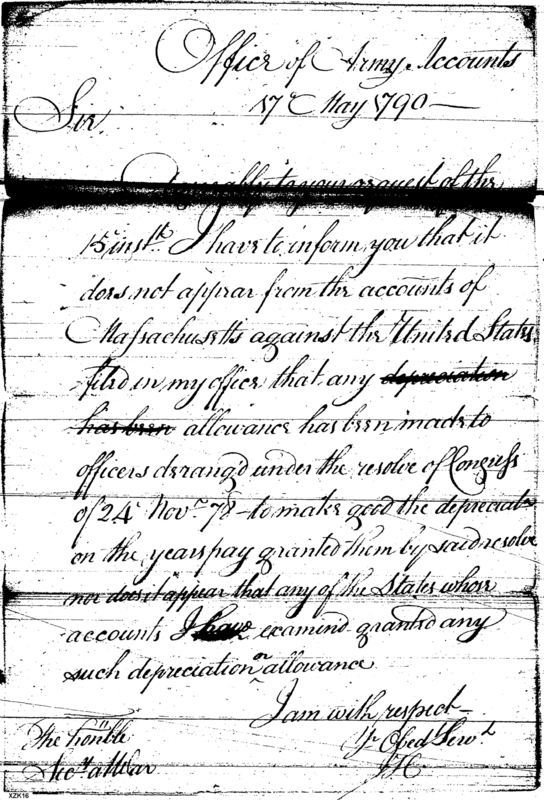 Office of Army Accounts
17th May 1790 —
Sir
Agreeably to your request of the
15 instt. I have to inform you that it
does not appear from the accounts of
Massachusetts against the United States
filed in my office that any depreciation
has been allowance has been made to
officers derang'd under the resolve of Congress
of 24 Novr 78 — to make good the depreciatn
on the years pay granted them by said resolve
nor does it appear that any of the States whose
accounts I have examind granted any
such depreciation or allowance
I am with respect —
The honble
Yr Obed Servt
Secy at War
JH
XZK16